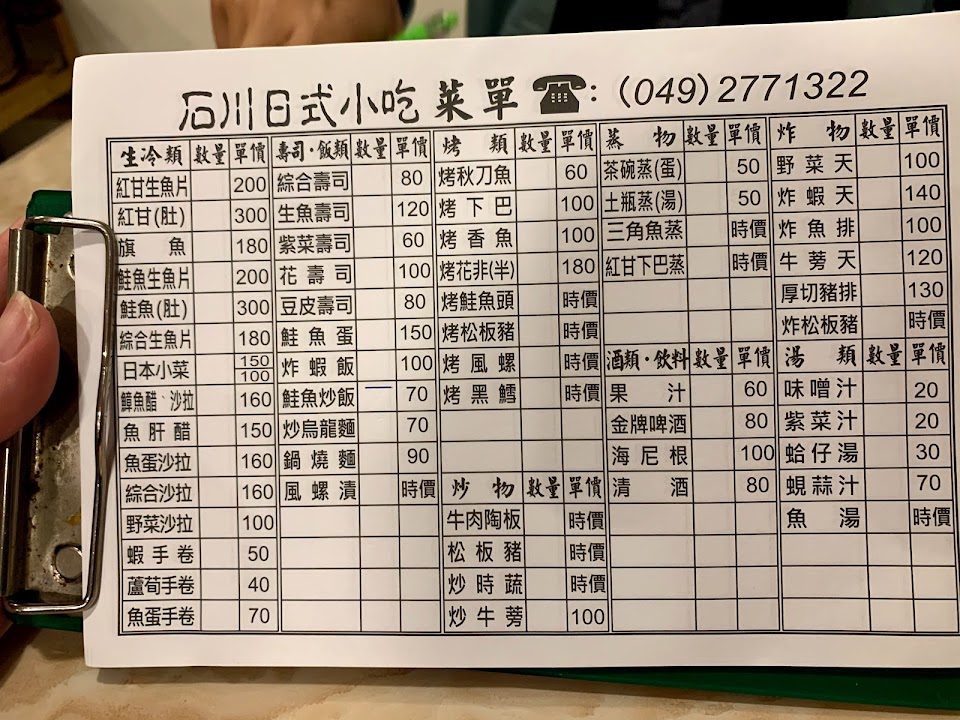 石川日式小吃 菜單 ☎:(049)2771322
生冷類 數量 單價
紅甘生魚片 200
紅甘(肚) 300
旗魚 180
鮭魚生魚片 200
鮭魚(肚) 300
綜合生魚片 180
日本小菜 150 100
鱆魚醋、沙拉 160
魚肝醋 150
魚蛋沙拉 160
綜合沙拉 160
野菜沙拉 100
蝦手卷 50
蘆荀手卷 40
魚蛋手卷 70
壽司·飯類 數量 單價
綜合壽司 80
生魚壽司 120
紫菜壽司 60
花壽司 100
豆皮壽司 80
鮭魚蛋 150
炸蝦飯 100
鮭魚炒飯 70
炒烏龍麵 70
鍋燒麵 90
風螺漬 時價
烤類 數量 單價
烤秋刀魚 60
烤下巴 100
烤香魚 100
烤花非(半) 180
烤鮭魚頭 時價
烤松板豬 時價
烤風螺 時價
烤黑鱈 時價
炒物 數量 單價
牛肉陶板 時價
松板豬 時價
炒時蔬 時價
炒牛蒡 100
蒸物 數量 單價
茶碗蒸(蛋) 50
土瓶蒸(湯) 50
三角魚蒸 時價
紅甘下巴蒸 時價
酒類·飲料 數量 單價
果汁 60
金牌啤酒 80
海尼根 100
清酒 80
炸物 數量 單價
野菜天 100
炸蝦天 140
炸魚排 100
牛蒡天 120
厚切豬排 130
炸松板豬 時價
湯類 數量 單價
味噌汁 20
紫菜汁 20
蛤仔湯 30
蜆蒜汁 70
魚湯 時價